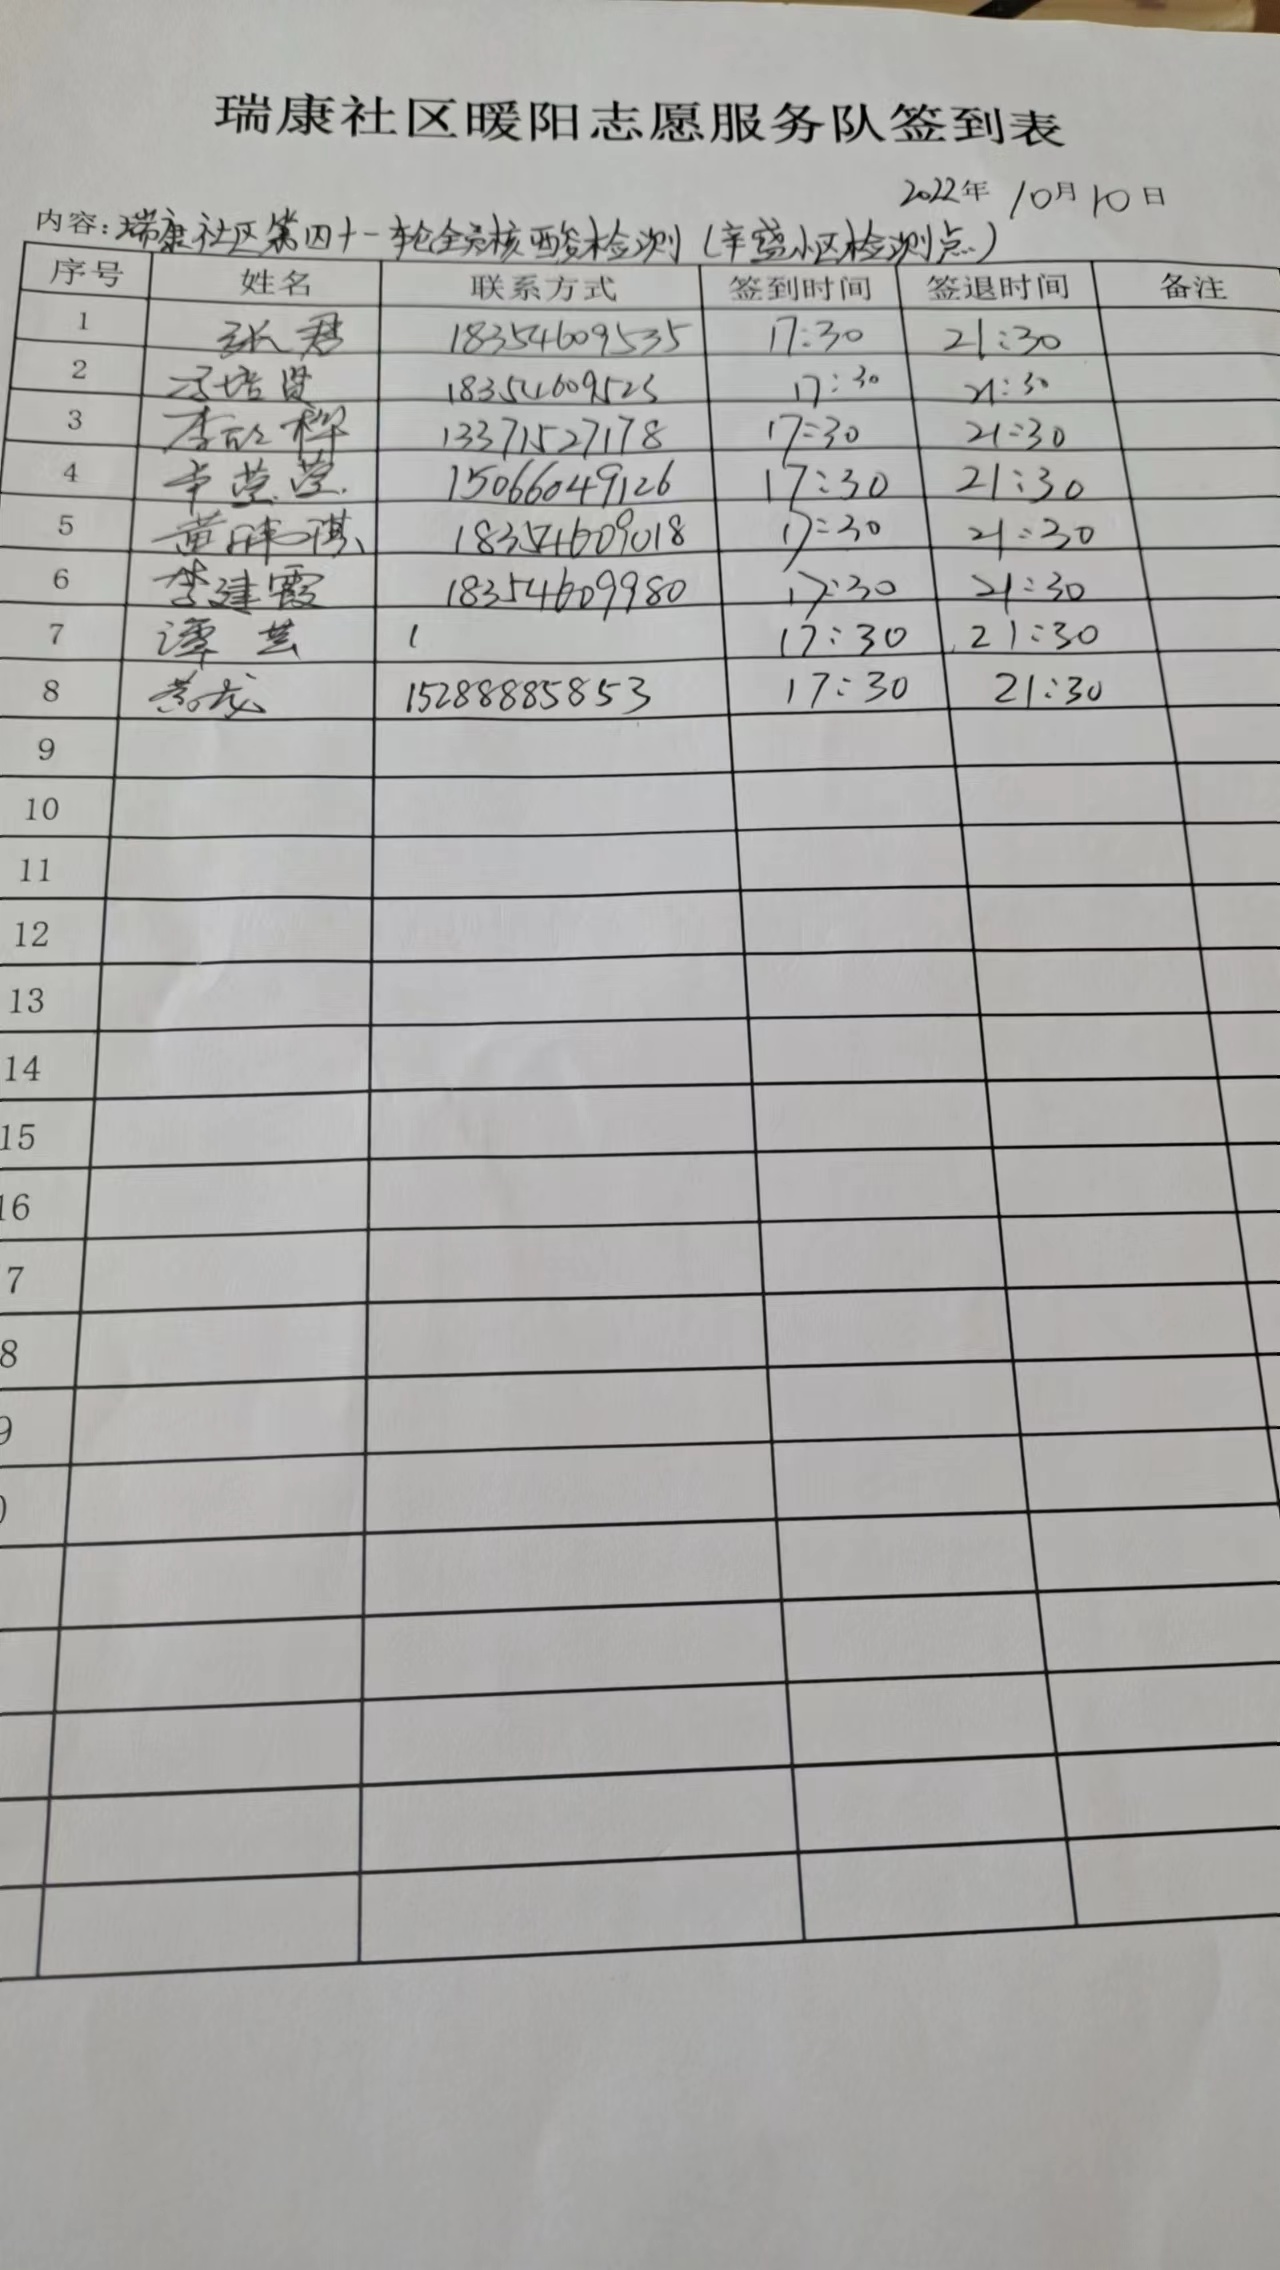 瑞康社区暖阳志愿服务队签到表
2022年 10月 10日
内容：瑞康社区第四十一轮全员核酸检测（辛盛小区检测点）
序号 姓名 联系方式 签到时间 签退时间 备注
1 张君 18354609535 17:30 21:30
2 培贤 18354609525 17:30 21:30
3 李欣桦 13371527178 17:30 21:30
4 辛莹莹 15066049126 17:30 21:30
5 黄琪 18354609018 17:30 21:30
6 李建霞 18354609980 17:30 21:30
7 谭芸 1 17:30 21:30
8 15288885853 17:30 21:30
9
10
11
12
13
14
15
16
7
8
9
0